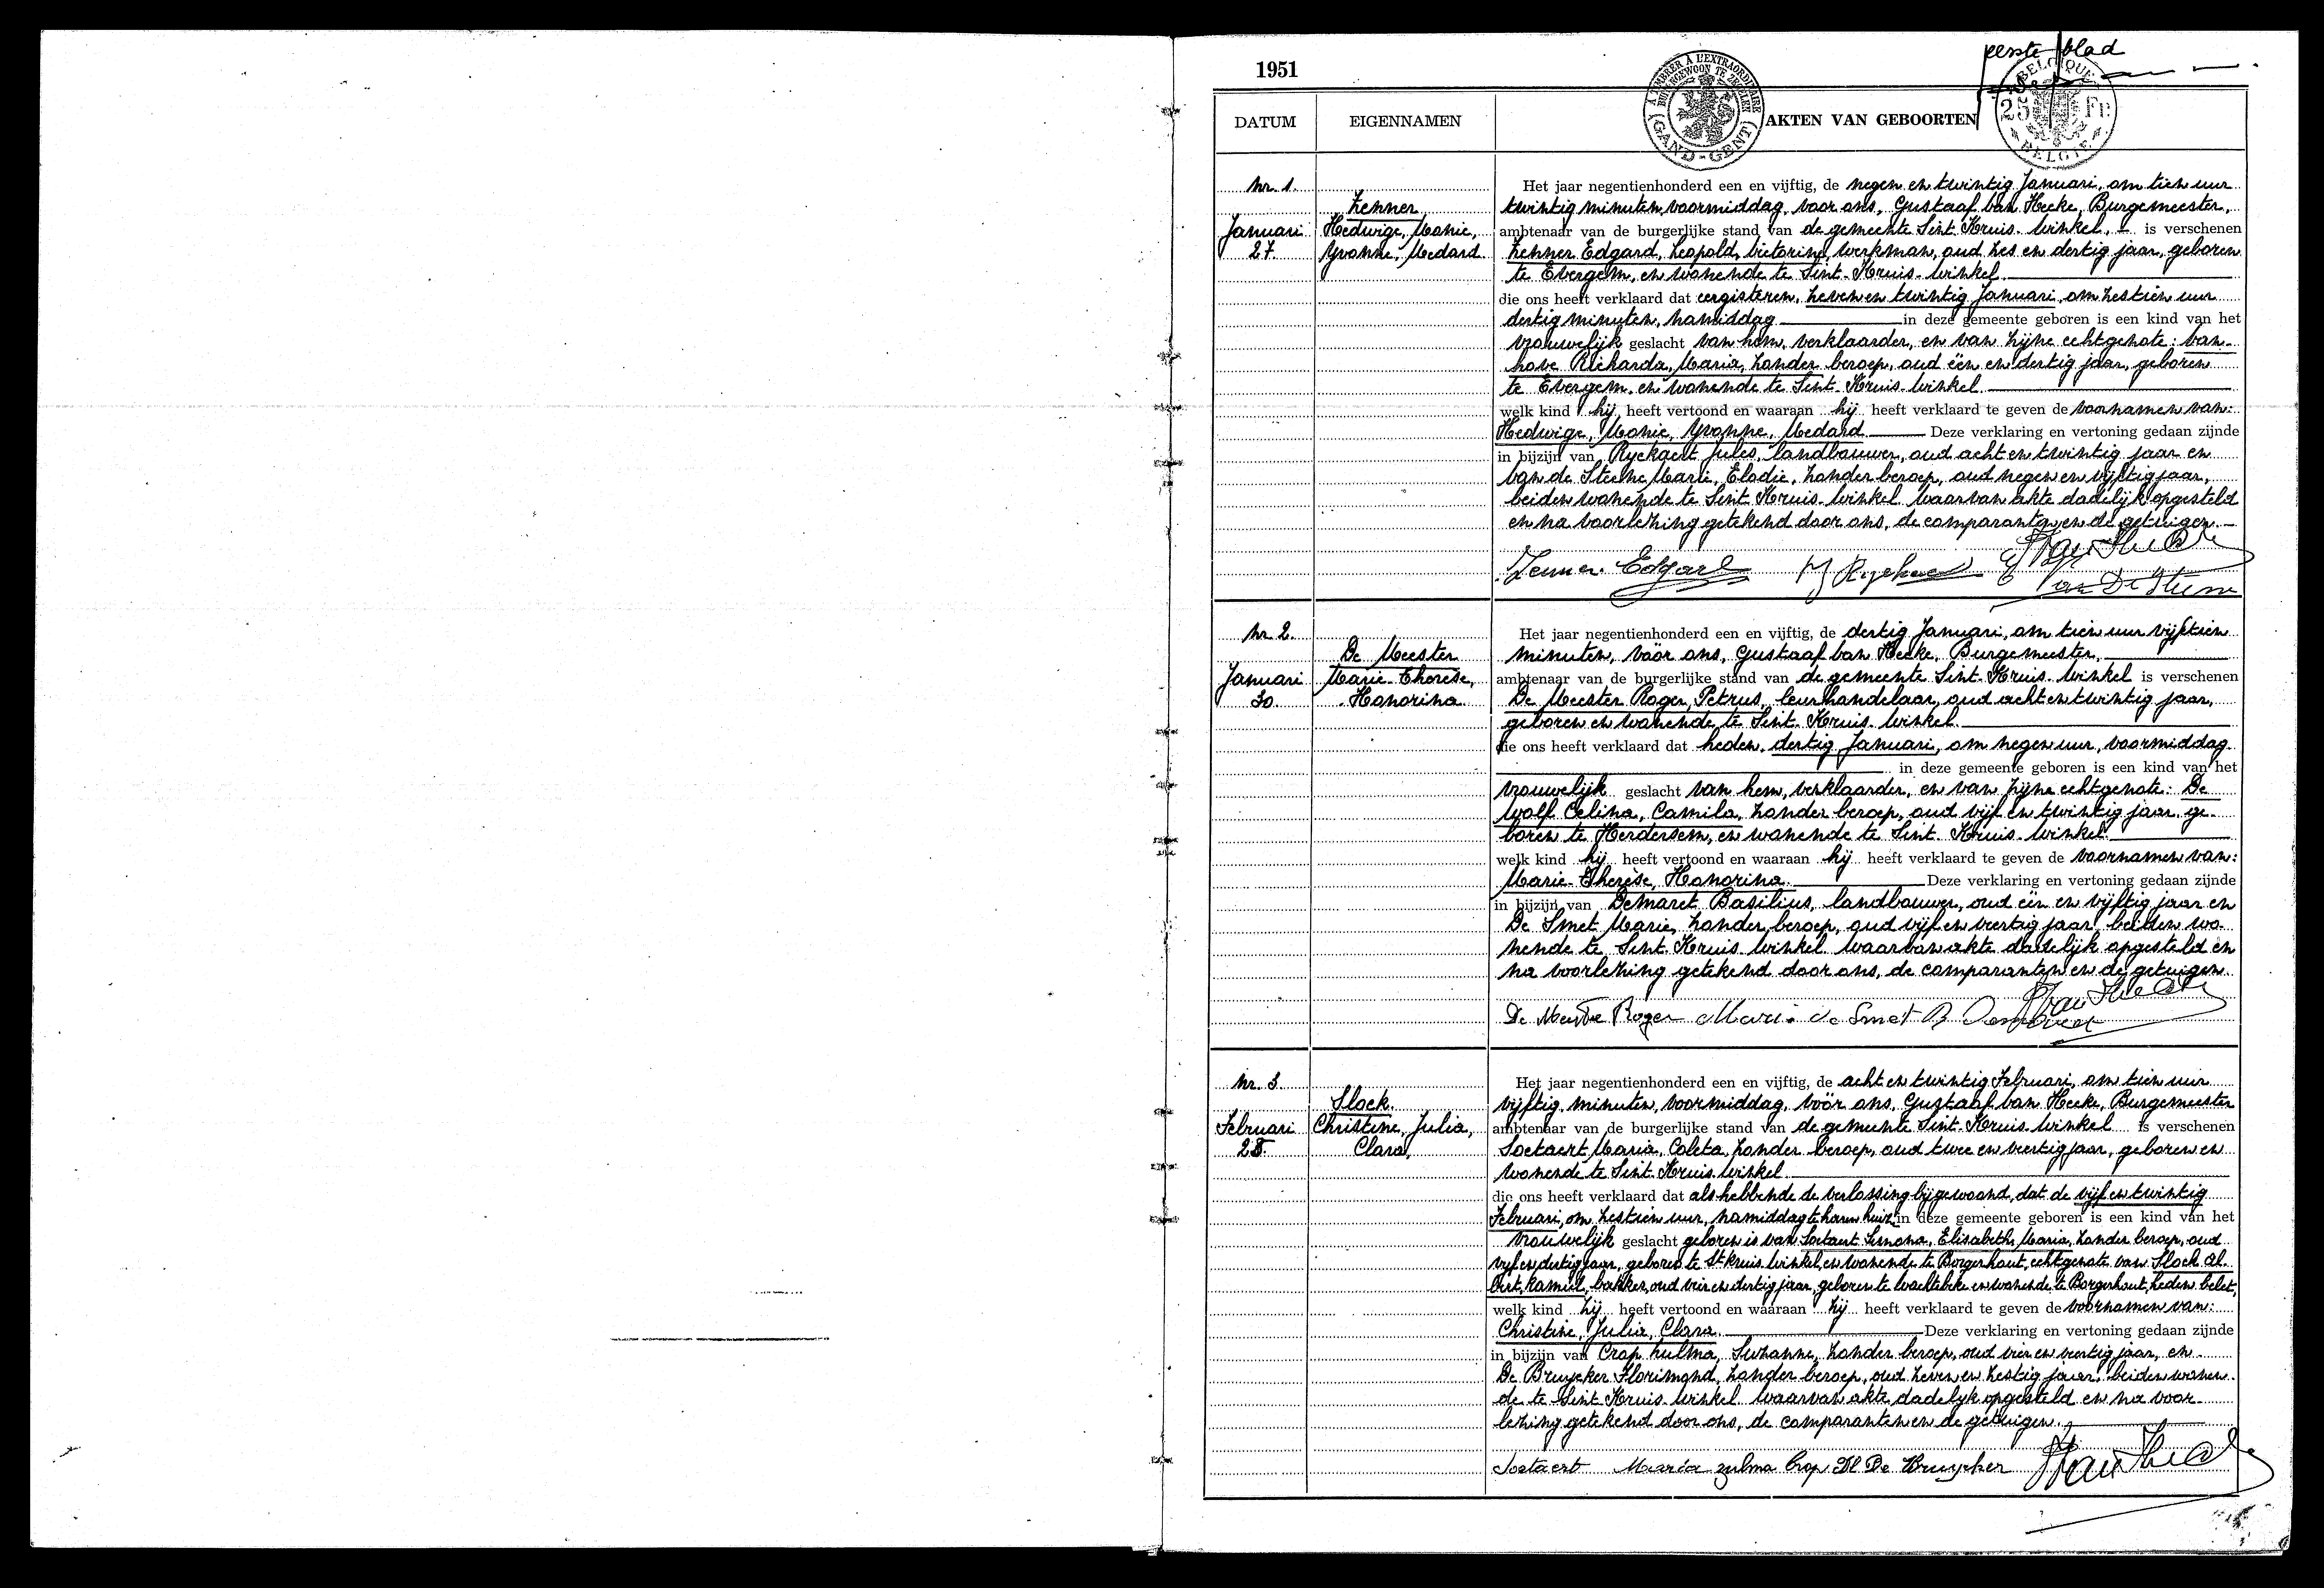 eerste blad
1951
A TIMBRER A L'EXTRAORDINAIRE
BUITENGEWOON TE ZEGELEN
GAND-GENT
BELGIQUE
25 Fr.
BELGIE
DATUM EIGENNAMEN AKTEN VAN GEBOORTEN
Nr. 1. Het jaar negentienhonderd een en vijftig, de negen en twintig Januari, om tien uur
Zenner twintig minuten, voormiddag, voor ons, Gustaaf Van Hecke, Burgemeester,
Januari Hedwige, Monie, ambtenaar van de burgerlijke stand van de gemeente Sint-Kruis-Winkel, is verschenen
27. Yvonne, Medard Zenner Edgard, Leopold, Victorine, werkman, oud zes en dertig jaar, geboren
te Evergem, en wonende te Sint-Kruis-Winkel
die ons heeft verklaard dat eergisteren, zeven en twintig Januari, om zestien uur
dertig minuten, namiddag in deze gemeente geboren is een kind van het
vrouwelijk geslacht van hem, verklaarder, en van zijne echtgenote: Van-
hove Richarda, Maria, zonder beroep, oud één en dertig jaar, geboren
te Evergem, en wonende te Sint-Kruis-Winkel
welk kind hij heeft vertoond en waaraan hij heeft verklaard te geven de voornamen van:
Hedwige, Monie, Yvonne, Medard Deze verklaring en vertoning gedaan zijnde
in bijzijn van Ryckaert Jules, landbouwer, oud acht en twintig jaar en
Van de Steene Marie, Elodie, zonder beroep, oud negen en vijftig jaar,
beiden wonende te Sint-Kruis-Winkel waarvan akte dadelijk opgesteld
en na voorlezing getekend door ons, de comparanten en de getuigen.
Zenner Edgard J Ryckaert G Van Hecke
Van De Steene
Nr. 2. Het jaar negentienhonderd een en vijftig, de dertig Januari, om tien uur vijftien
De Meester minuten, vóór ons, Gustaaf Van Hecke, Burgemeester,
Januari Marie-Thérèse, ambtenaar van de burgerlijke stand van de gemeente Sint-Kruis-Winkel is verschenen
30. Honorina De Meester Roger, Petrus, leurhandelaar, oud acht en twintig jaar,
geboren en wonende te Sint-Kruis-Winkel
die ons heeft verklaard dat heden, dertig Januari, om negen uur, voormiddag
in deze gemeente geboren is een kind van het
vrouwelijk geslacht van hem, verklaarder, en van zijne echtgenote: De
Wolf Celina, Camila, zonder beroep, oud vijf en twintig jaar, ge-
boren te Herdersem, en wonende te Sint-Kruis-Winkel
welk kind hij heeft vertoond en waaraan hij heeft verklaard te geven de voornamen van:
Marie-Thérèse, Honorina Deze verklaring en vertoning gedaan zijnde
in bijzijn van Demaret Basilius, landbouwer, oud één en vijftig jaar en
De Smet Marie, zonder beroep, oud vijf en veertig jaar beiden wo-
nende te Sint-Kruis-Winkel waarvan akte dadelijk opgesteld en
na voorlezing getekend door ons, de comparanten en de getuigen.
De Meester Roger Marie de Smet B Demaret G Van Hecke
Nr. 3. Het jaar negentienhonderd een en vijftig, de acht en twintig Februari, om tien uur
Slock. vijftig minuten, voormiddag, vóór ons, Gustaaf Van Hecke, Burgemeester
Februari Christine, Julia, ambtenaar van de burgerlijke stand van de gemeente Sint-Kruis-Winkel is verschenen
25. Clara, Soetaert Maria, Coleta, zonder beroep, oud twee en veertig jaar, geboren en
wonende te Sint-Kruis-Winkel
die ons heeft verklaard dat als hebbende de verlossing bijgewoond, dat de vijf en twintig
Februari, om zestien uur, namiddag te haren huize in deze gemeente geboren is een kind van het
vrouwelijk geslacht geboren is van Soetaert Simona, Elisabeth, Maria, zonder beroep, oud
vijf en dertig jaar, geboren te St Kruis-Winkel, en wonende te Borgerhout, echtgenote van Slock Al-
bert, Kamiel, bakker, oud vier en dertig jaar, geboren te Wachtebeke en wonende te Borgerhout, heden belet,
welk kind zij heeft vertoond en waaraan zij heeft verklaard te geven de voornamen van:
Christine, Julia, Clara Deze verklaring en vertoning gedaan zijnde
in bijzijn van Crop Zulma, Suzanne, zonder beroep, oud vier en veertig jaar, en
De Bruycker Florimond, zonder beroep, oud zeven en zestig jaar, beiden wonen-
de te Sint-Kruis-Winkel waarvan akte dadelijk opgesteld en na voor-
lezing getekend door ons, de comparanten en de getuigen.
Soetaert Maria Zulma Crop Fl De Bruycker G Van Hecke